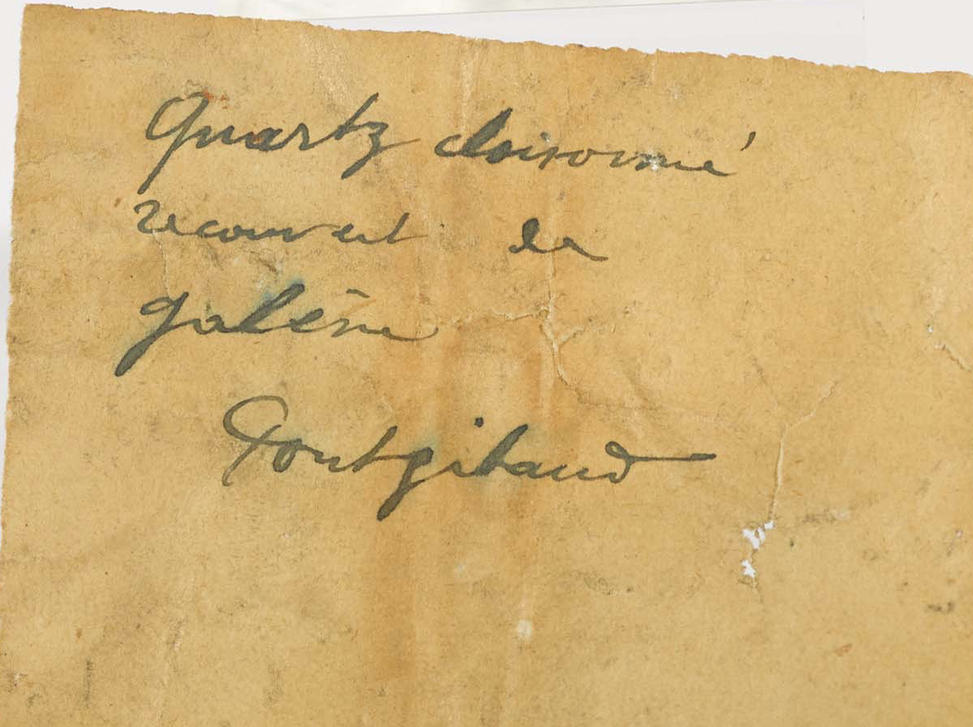 Quartz cloisonné
recouvert de
galène
Pontgibaud